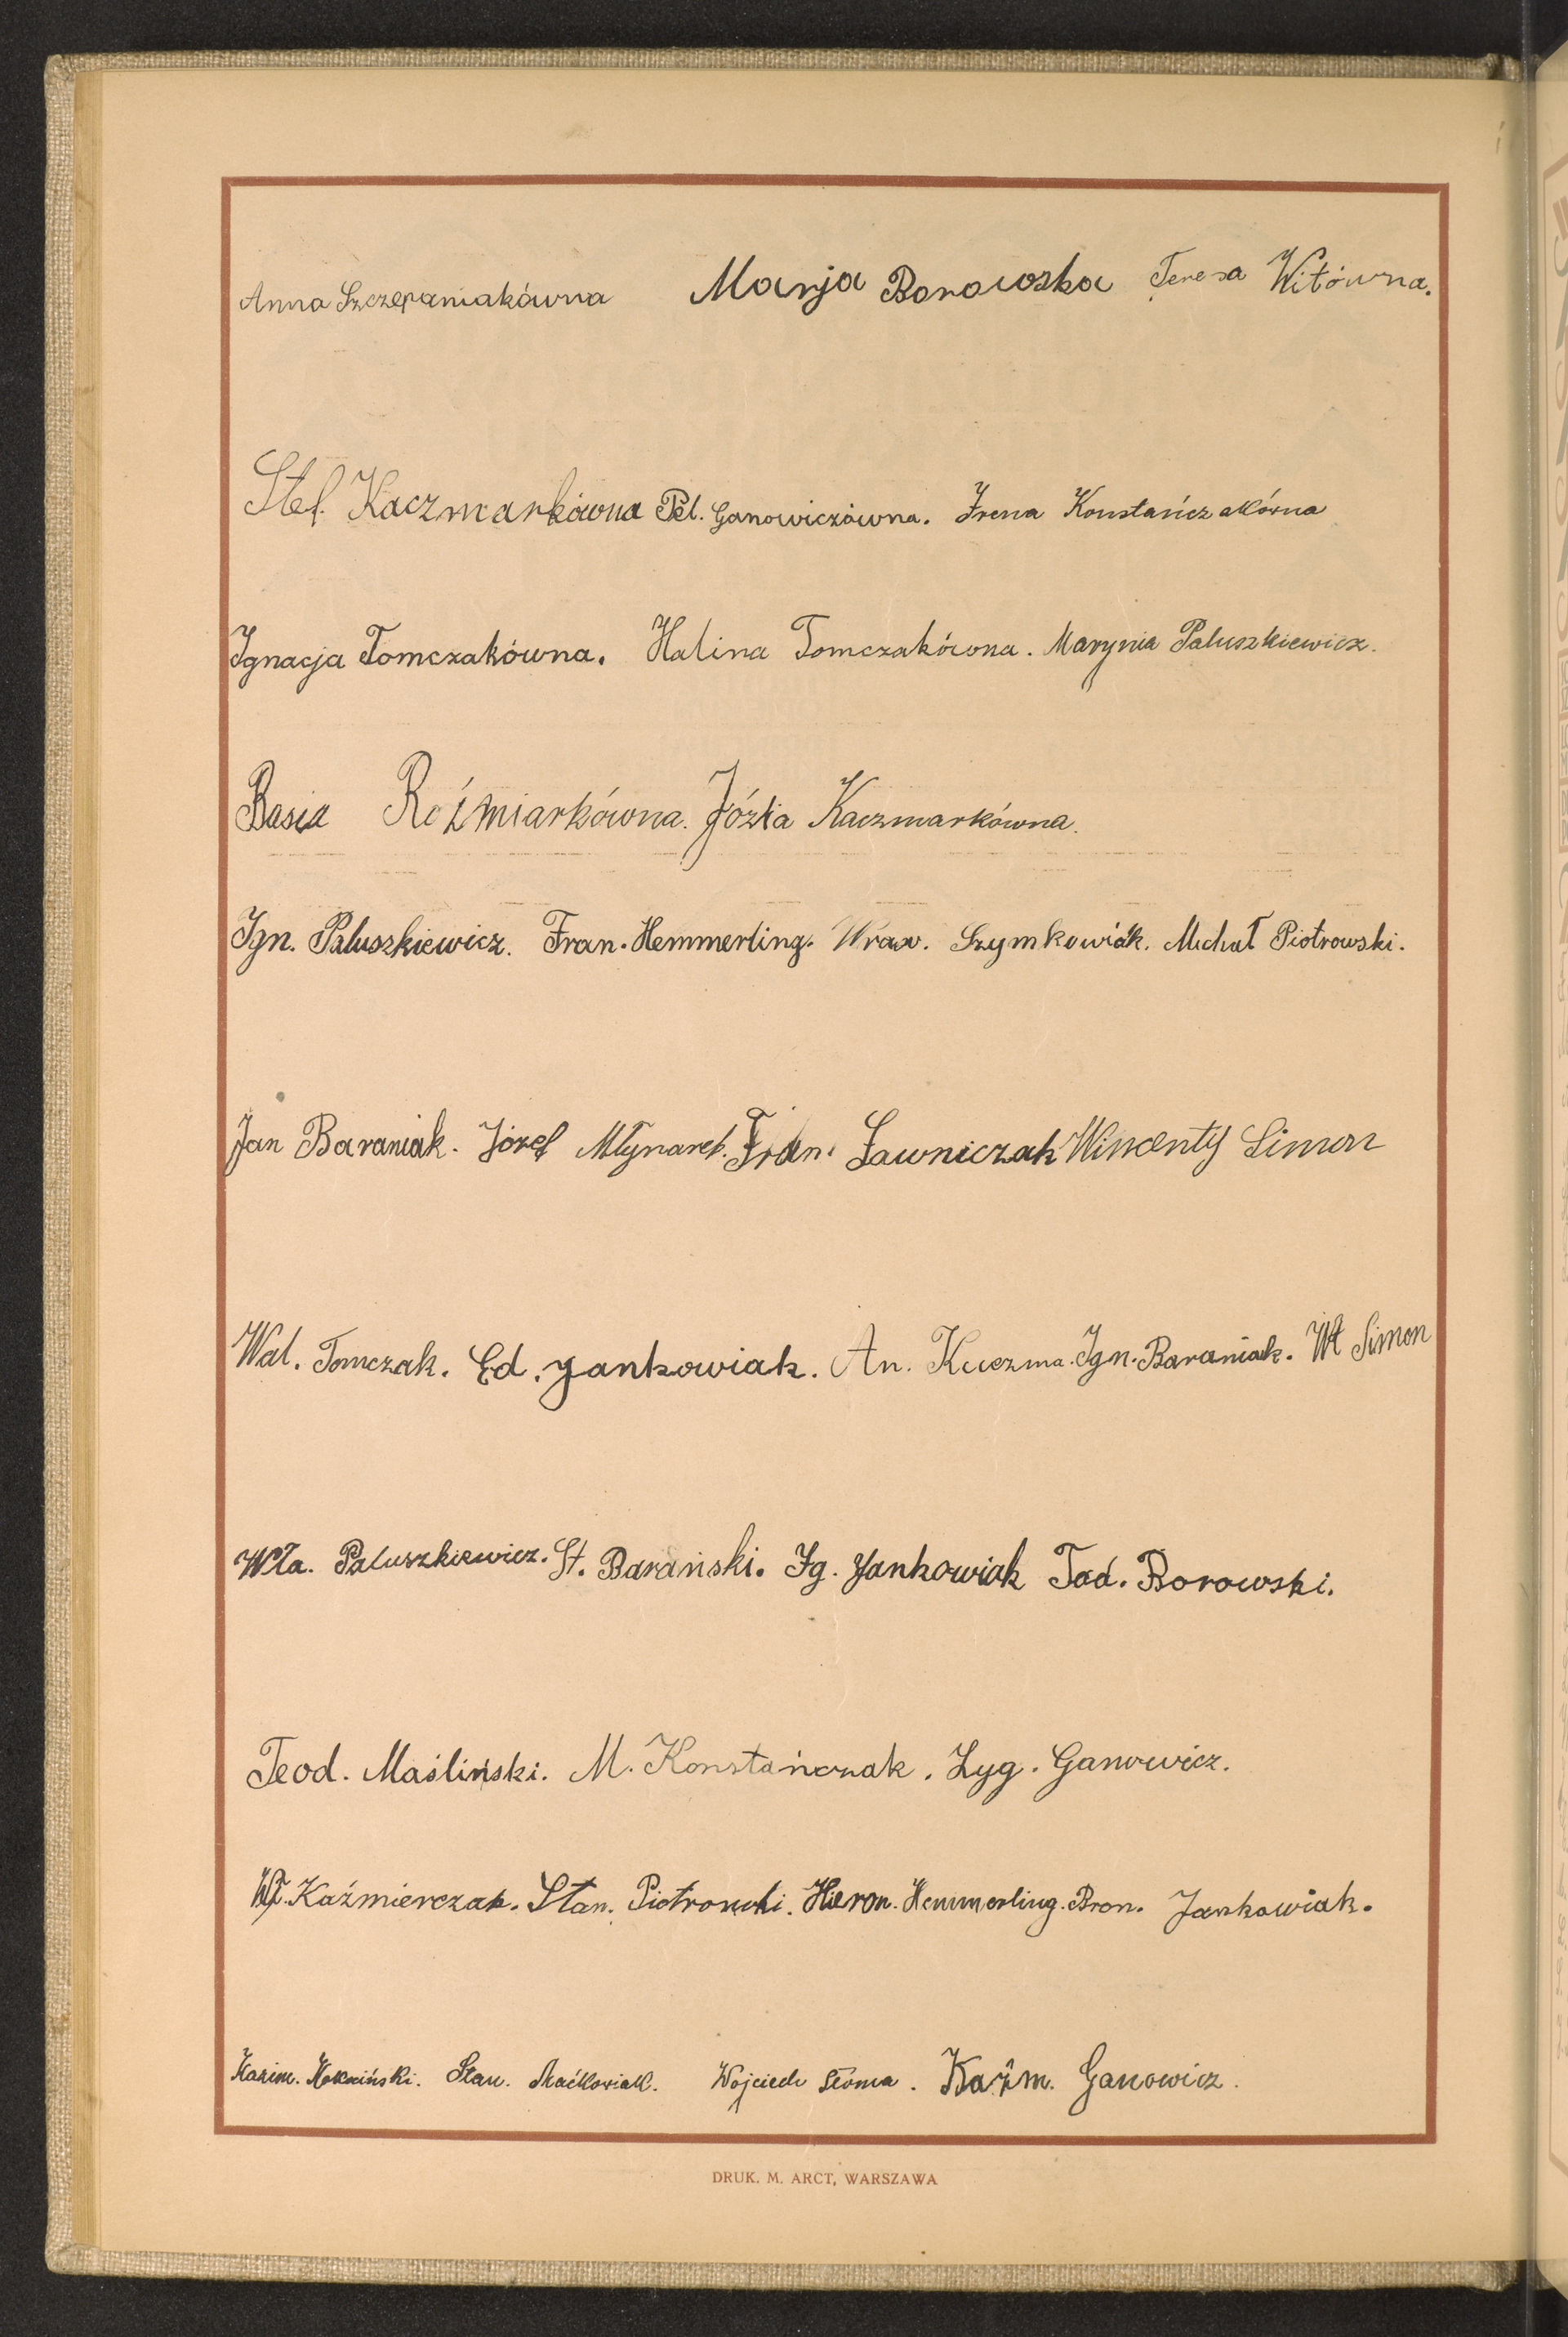 Anna Szczepaniakówna Marja Borowska Teresa Witówna.
Stef. Kaczmarkówna Pel. Ganowiczówna. Irena Konstańczakówna
Ignacja Tomczakówna. Halina Tomczakówna. Marynia Paluszkiewicz.
Basia Roźmiarkówna. Józia Kaczmarkówna.
Ign. Paluszkiewicz. Fran. Hemmerling. Waw. Szymkowiak. Michał Piotrowski.
Jan Baraniak. Józef Młynarek. Fran. Ławniczak Wincenty Simon
Wal. Tomczak. Ed. Jankowiak. An. Kuczma. Ign. Baraniak. Wł Simon
Wła. Paluszkiewicz. St. Barański. Ig. Jankowiak Tad. Borowski.
Teod. Maśliński. M. Konstańczak. Zyg. Ganowicz.
Wł. Kaźmierczak. Stan. Piotrowski. Hieron. Hemmerling. Bron. Jankowiak.
Kazim. Stan. Maćkowiak. Wojciech Słoma. Kaźm. Ganowicz.
DRUK. M. ARCT, WARSZAWA